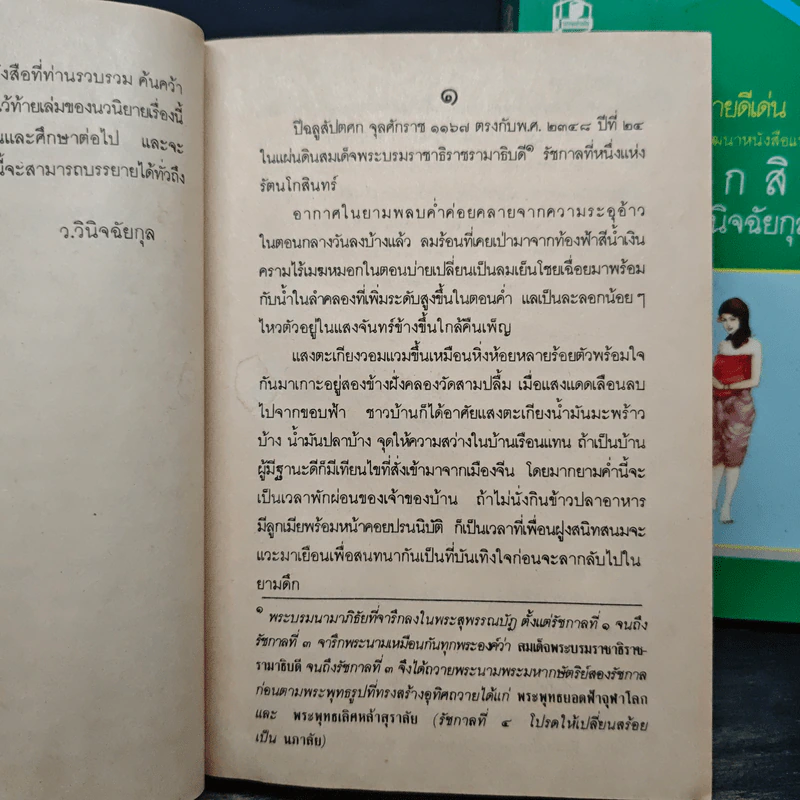 งสือที่ท่านรวบรวม ค้นคว้า
ว้ท้ายเล่มของนวนิยายเรื่องนี้
นและศึกษาต่อไป และจะ
นี้จะสามารถบรรยายได้ทั่วถึง
ว.วินิจฉัยกุล
๑
ปีฉลูสัปตศก จุลศักราช ๑๑๖๗ ตรงกับพ.ศ. ๒๓๔๘ ปีที่ ๒๔
ในแผ่นดินสมเด็จพระบรมราชาธิราชรามาธิบดี๑ รัชกาลที่หนึ่งแห่ง
รัตนโกสินทร์
อากาศในยามพลบค่ำค่อยคลายจากความระอุอ้าว
ในตอนกลางวันลงบ้างแล้ว ลมร้อนที่เคยเป่ามาจากท้องฟ้าสีน้ำเงิน
ครามไร้เมฆหมอกในตอนบ่ายเปลี่ยนเป็นลมเย็นโชยเฉื่อยมาพร้อม
กับน้ำในลำคลองที่เพิ่มระดับสูงขึ้นในตอนค่ำ แลเป็นละลอกน้อยๆ
ไหวตัวอยู่ในแสงจันทร์ข้างขึ้นใกล้คืนเพ็ญ
แสงตะเกียงวอมแวมขึ้นเหมือนหิ่งห้อยหลายร้อยตัวพร้อมใจ
กันมาเกาะอยู่สองข้างฝั่งคลองวัดสามปลื้ม เมื่อแสงแดดเลือนลบ
ไปจากขอบฟ้า ชาวบ้านก็ได้อาศัยแสงตะเกียงน้ำมันมะพร้าว
บ้าง น้ำมันปลาบ้าง จุดให้ความสว่างในบ้านเรือนแทน ถ้าเป็นบ้าน
ผู้มีฐานะดีก็มีเทียนไขที่สั่งเข้ามาจากเมืองจีน โดยมากยามค่ำนี้จะ
เป็นเวลาพักผ่อนของเจ้าของบ้าน ถ้าไม่นั่งกินข้าวปลาอาหาร
มีลูกเมียพร้อมหน้าคอยปรนนิบัติ ก็เป็นเวลาที่เพื่อนฝูงสนิทสนมจะ
แวะมาเยือนเพื่อสนทนากันเป็นที่บันเทิงใจก่อนจะลากลับไปใน
ยามดึก
๑ พระบรมนามาภิธัยที่จารึกลงในพระสุพรรณบัฏ ตั้งแต่รัชกาลที่ ๑ จนถึง
รัชกาลที่ ๓ จารึกพระนามเหมือนกันทุกพระองค์ว่า สมเด็จพระบรมราชาธิราช-
รามาธิบดี จนถึงรัชกาลที่ ๓ จึงได้ถวายพระนามพระมหากษัตริย์สองรัชกาล
ก่อนตามพระพุทธรูปที่ทรงสร้างอุทิศถวายได้แก่ พระพุทธยอดฟ้าจุฬาโลก
และ พระพุทธเลิศหล้าสุราลัย (รัชกาลที่ ๔ โปรดให้เปลี่ยนสร้อย
เป็น นภาลัย)
ายดีเด่น
ฒนาหนังสือแห
กสิ
นิจฉัยกุ